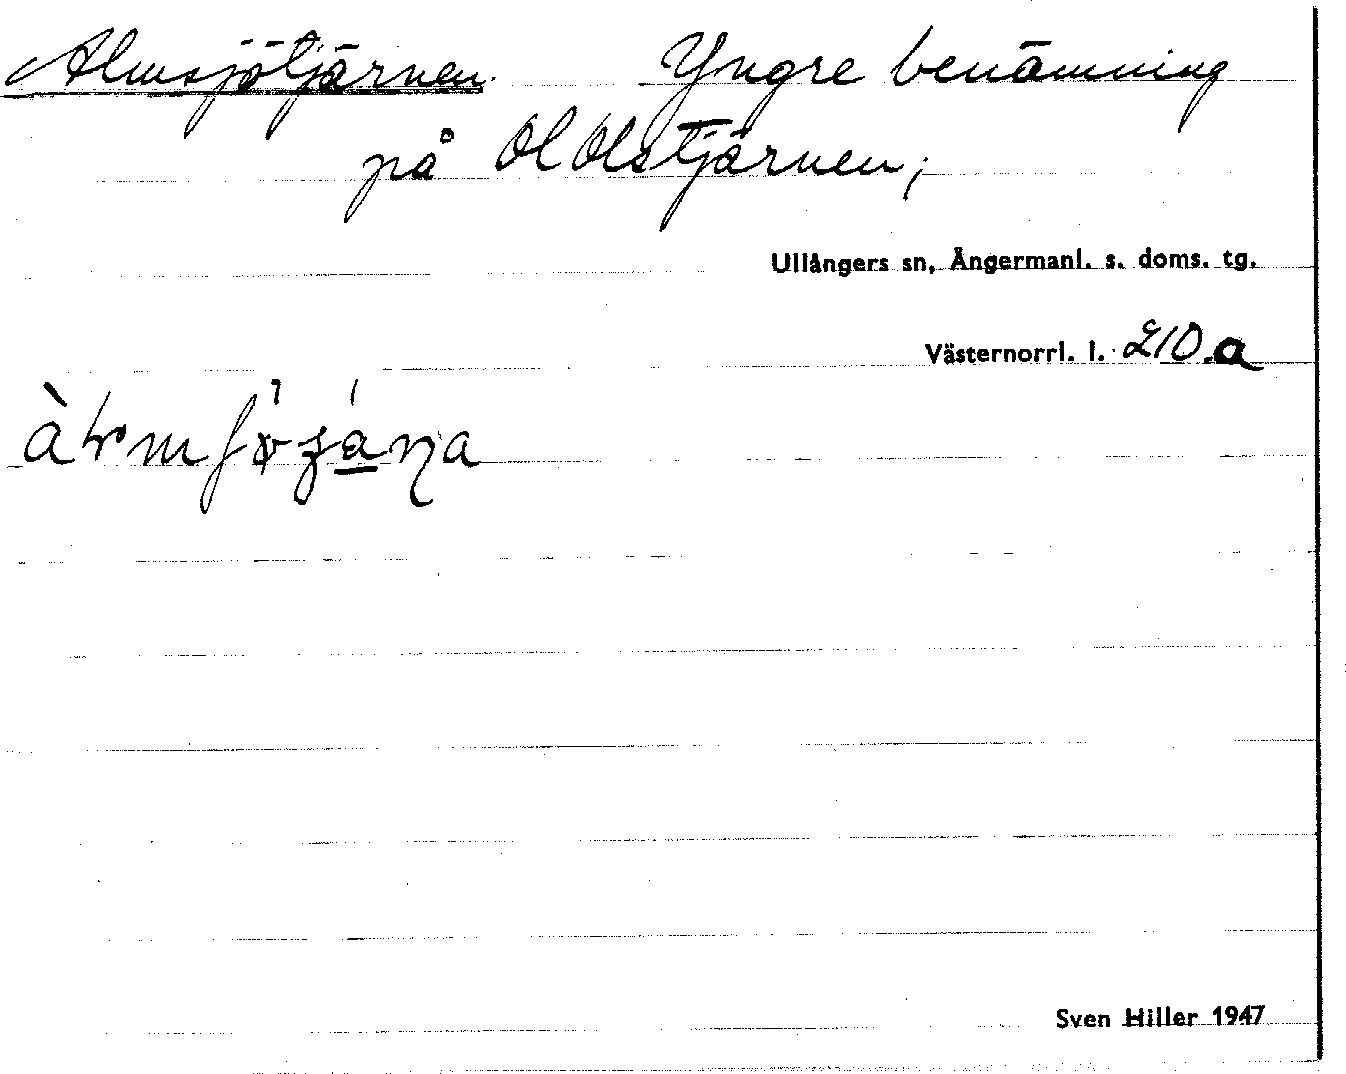 Almsjötjärnen. Yngre benämning
på Ol Olstjärnen;
Ullångers sn, Ångermanl. s. doms. tg.
Västernorrl. l. 210.a
Sven Hiller 1947